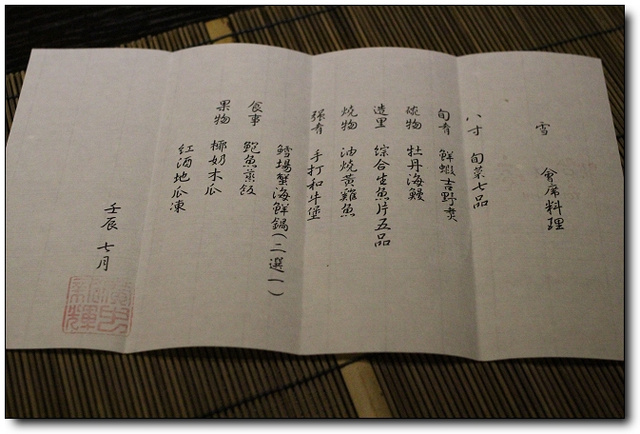 雪 會席料理
八寸 旬菜七品
旬肴 鮮蝦吉野煮
碗物 牡丹海鰻
造里 綜合生魚片五品
燒物 油燒黃雞魚
強肴 手打和牛堡
鱈場蟹海鮮鍋(二選一)
食事 鮑魚蒸飯
果物 椰奶木瓜
紅酒地瓜凍
壬辰 七月